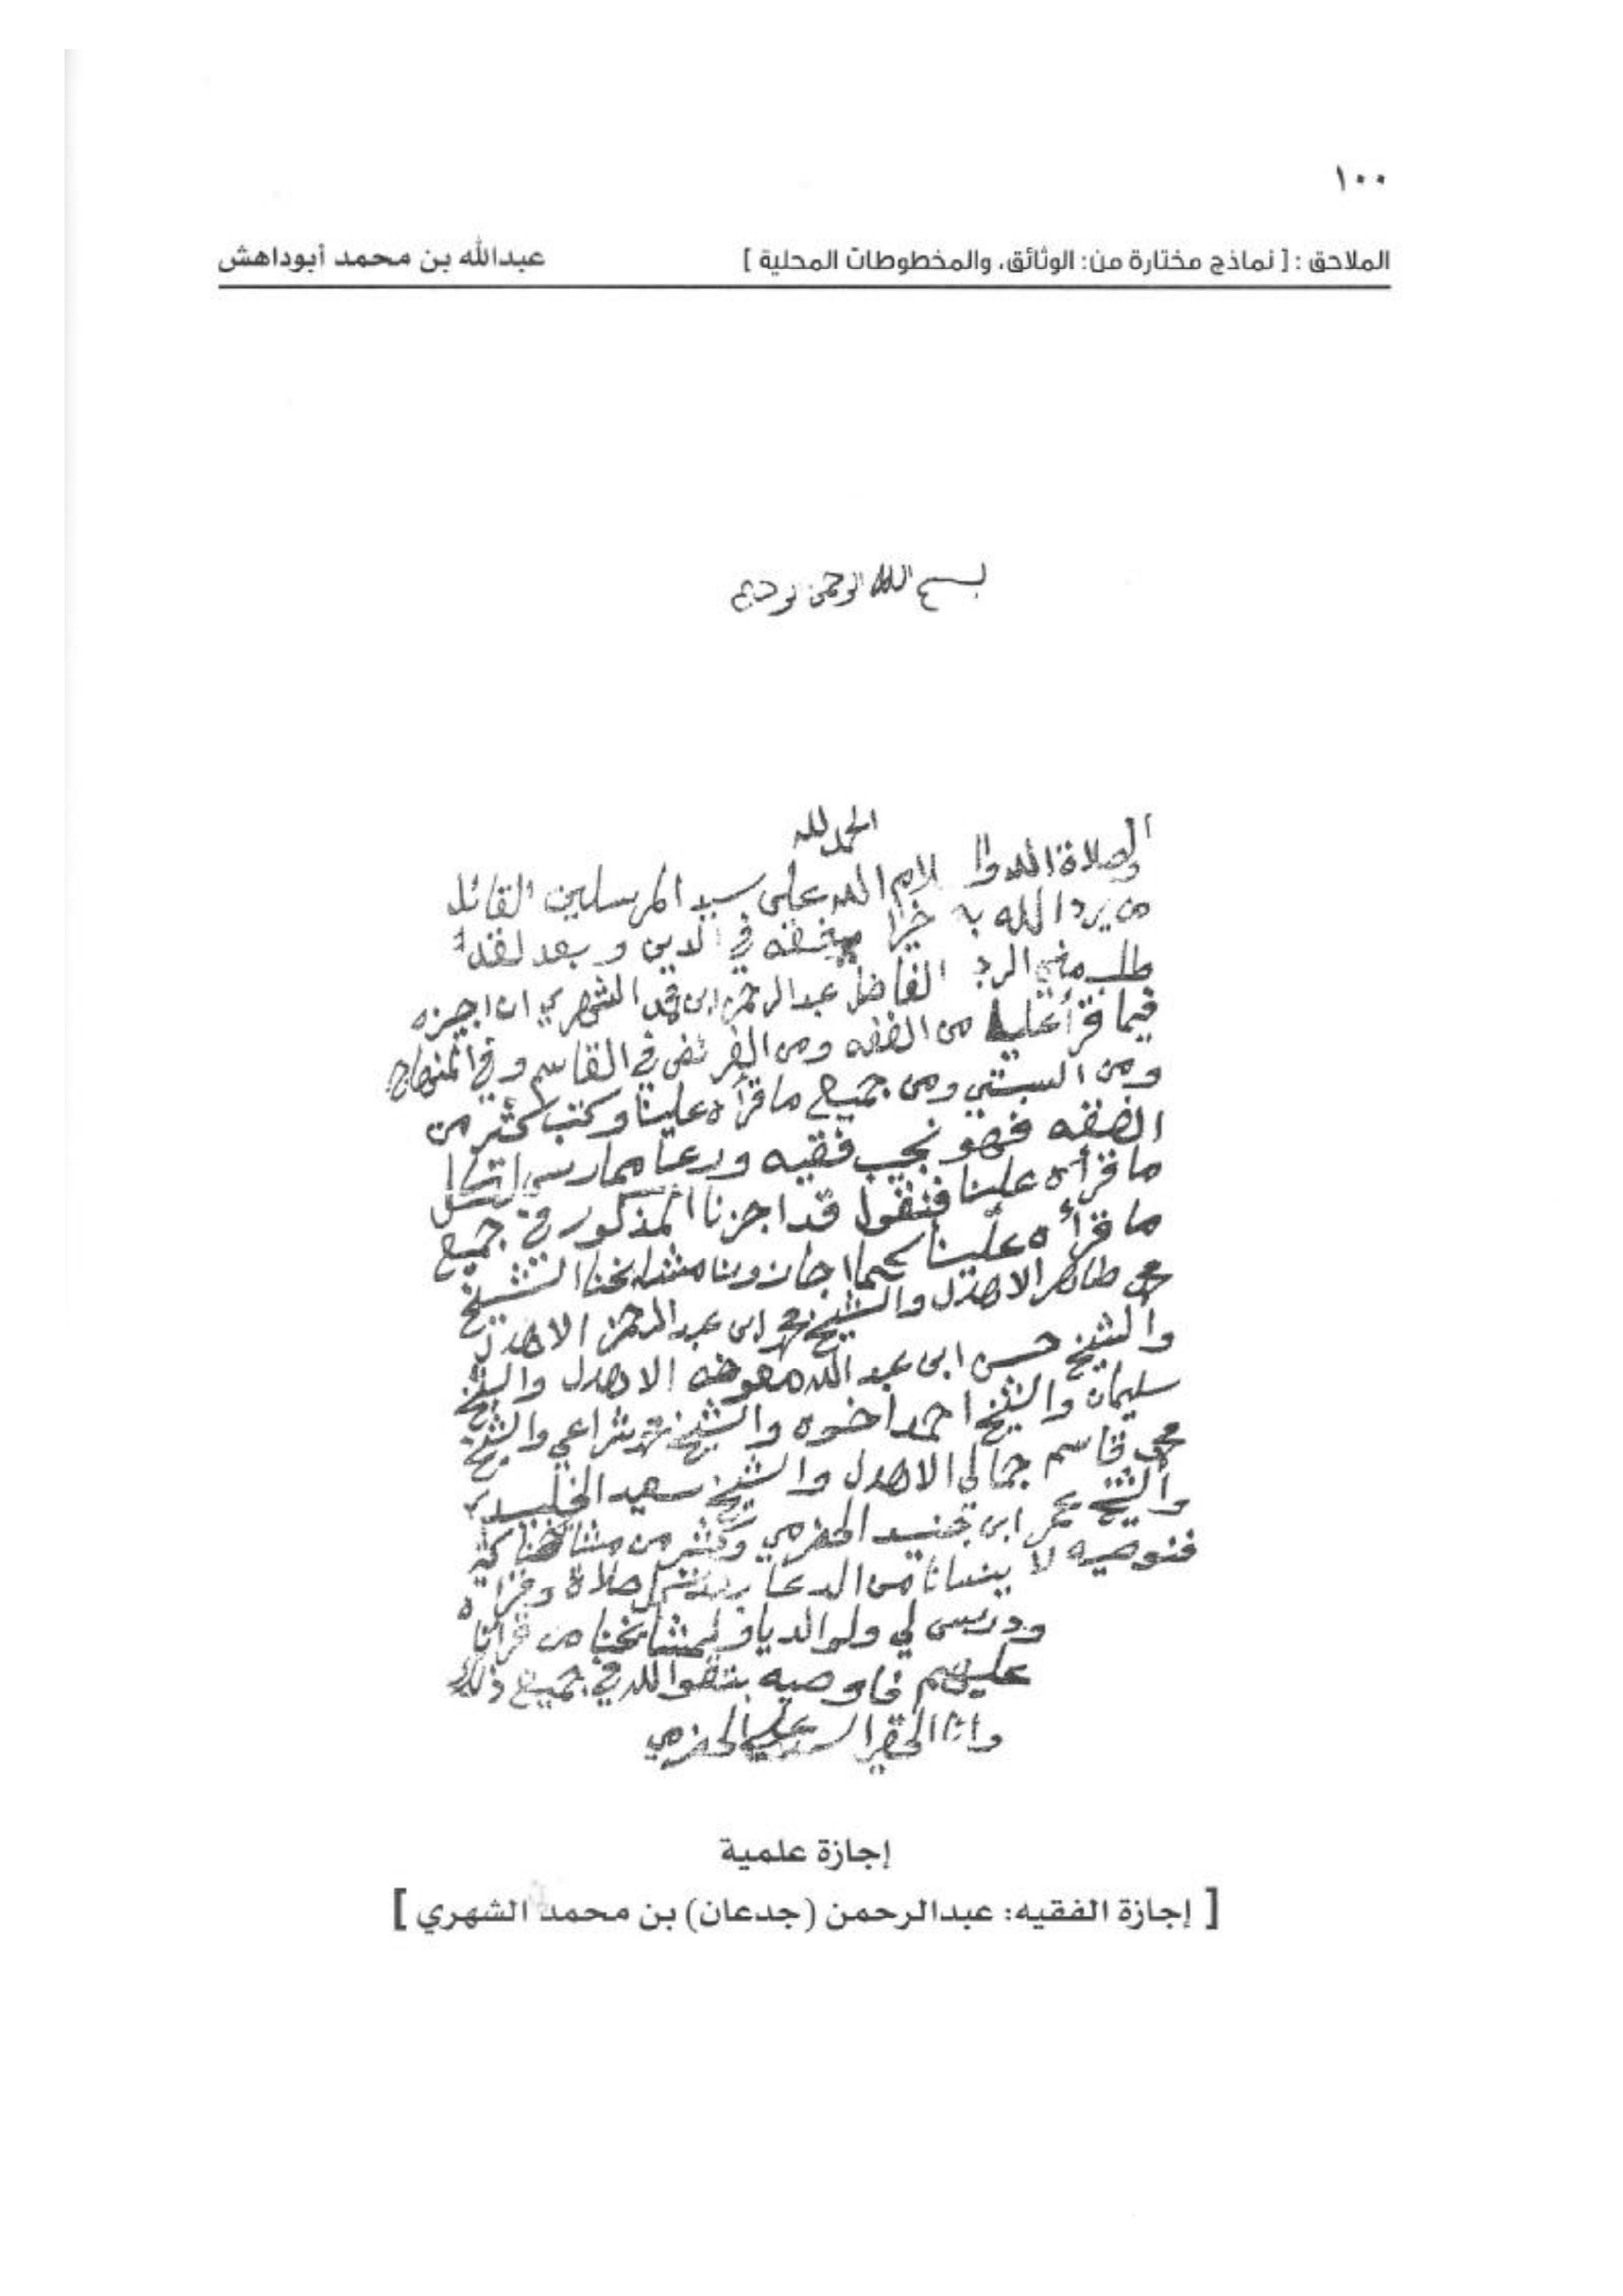 ١٠٠
الملاحق : [ نماذج مختارة من: الوثائق، والمخطوطات المحلية ] عبدالله بن محمد أبوداهش
بسم الله الرحمن
الحمد لله
والصلاة على سيد المرسلين القائل
من يرد الله به خيرا يفقهه في الدين وبعد لقد
طلب مني الفاضل عبدالرحمن ابن محمد الشهري ان اجيزه
فيما قرأ علينا من الفقه ومن الفرائض في القاسم وفي المنهاج
ومن السبتي ومن جميع ما قرأه علينا وكتب كثير من
الفقه فهو نجيب فقيه
ما قرأه علينا فنقول قد اجزنا المذكور في جميع
ما قرأه علينا كما اجازونا مشايخنا الشيخ
محمد طاهر الاهدل والشيخ محمد ابن عبدالرحمن الاهدل
والشيخ حسن ابن عبدالله معوضه الاهدل والشيخ
سليمان والشيخ احمد اخوه والشيخ محمد شراعي والشيخ
محمد قاسم جمالي الاهدل والشيخ سعيد
والشيخ عمر ابن جنيد الحضرمي وكثير من مشائخنا
فنوصيه لا ينسانا من الدعا صلاة وقراه
ودريس لي ولوالديا ولمشايخنا من قرأنا
عليهم فاوصيه بتقوا الله في جميع ذلك
وانا الحقير الحضرمي
إجازة علمية
[ إجازة الفقيه: عبدالرحمن (جدعان) بن محمد الشهري ]